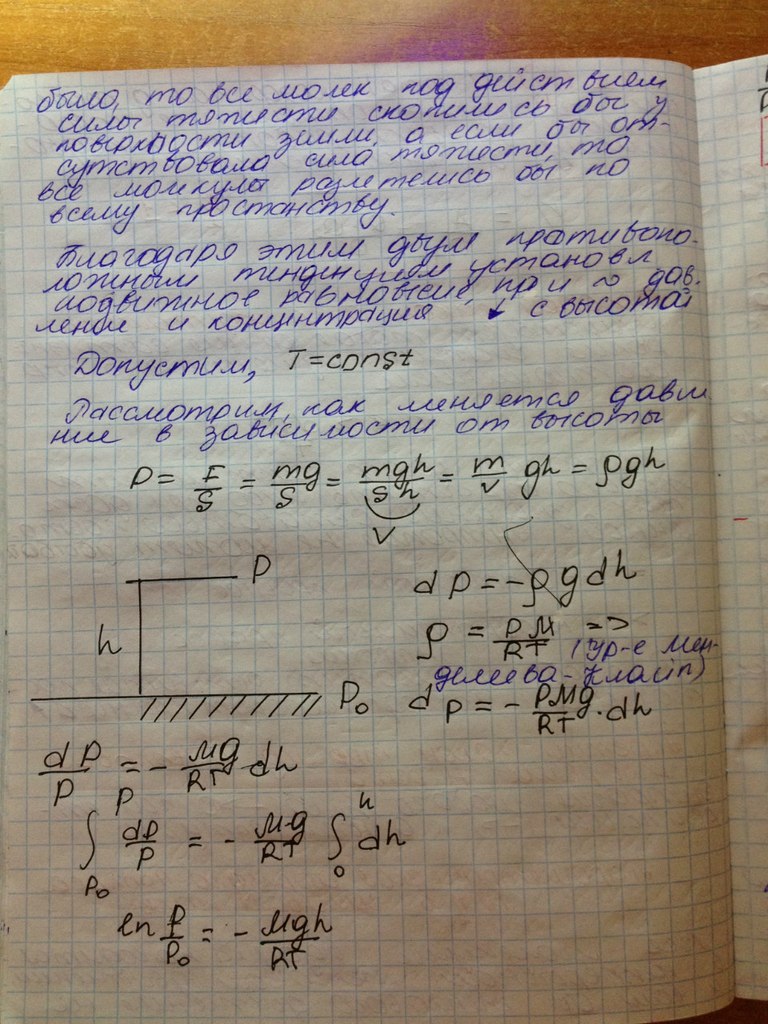 было, то все молек под действием
силы тяжести скопились бы у
поверхности земли, а если бы от-
сутствовала сила тяжести, то
все молкулы разлетелись бы по
всему простанству.
Благодаря этим двум противопо-
ложным тенденциям установл
подвижное равновесие, при ~ дав-
ление и концентрация ↓ с высотой
Допустим, T=const
Рассмотрим, как меняется давл
ние в зависимости от высоты
P = F/S = mg/S = mgh/Sh = m/V gh = ρgh
V
P
dP = -ρgdh
h
ρ = PM/RT => (ур-е Мен-
делеева-Класіп)
P₀
dP = - PMg/RT · dh
dP/P = - Mg/RT dh
∫ₚ₀ᴾ dP/P = - M·g/RT ∫₀ʰ dh
ln P/P₀ = - Mgh/RT